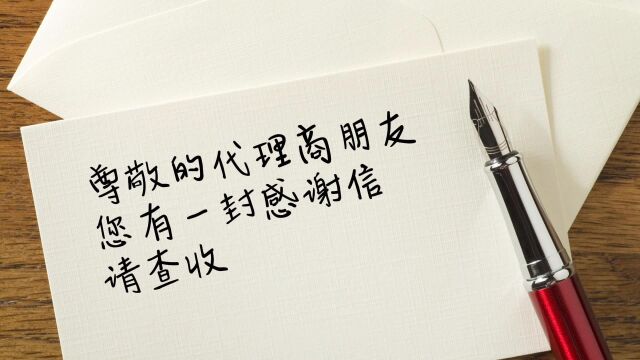 尊敬的代理商朋友
您有一封感谢信
请查收